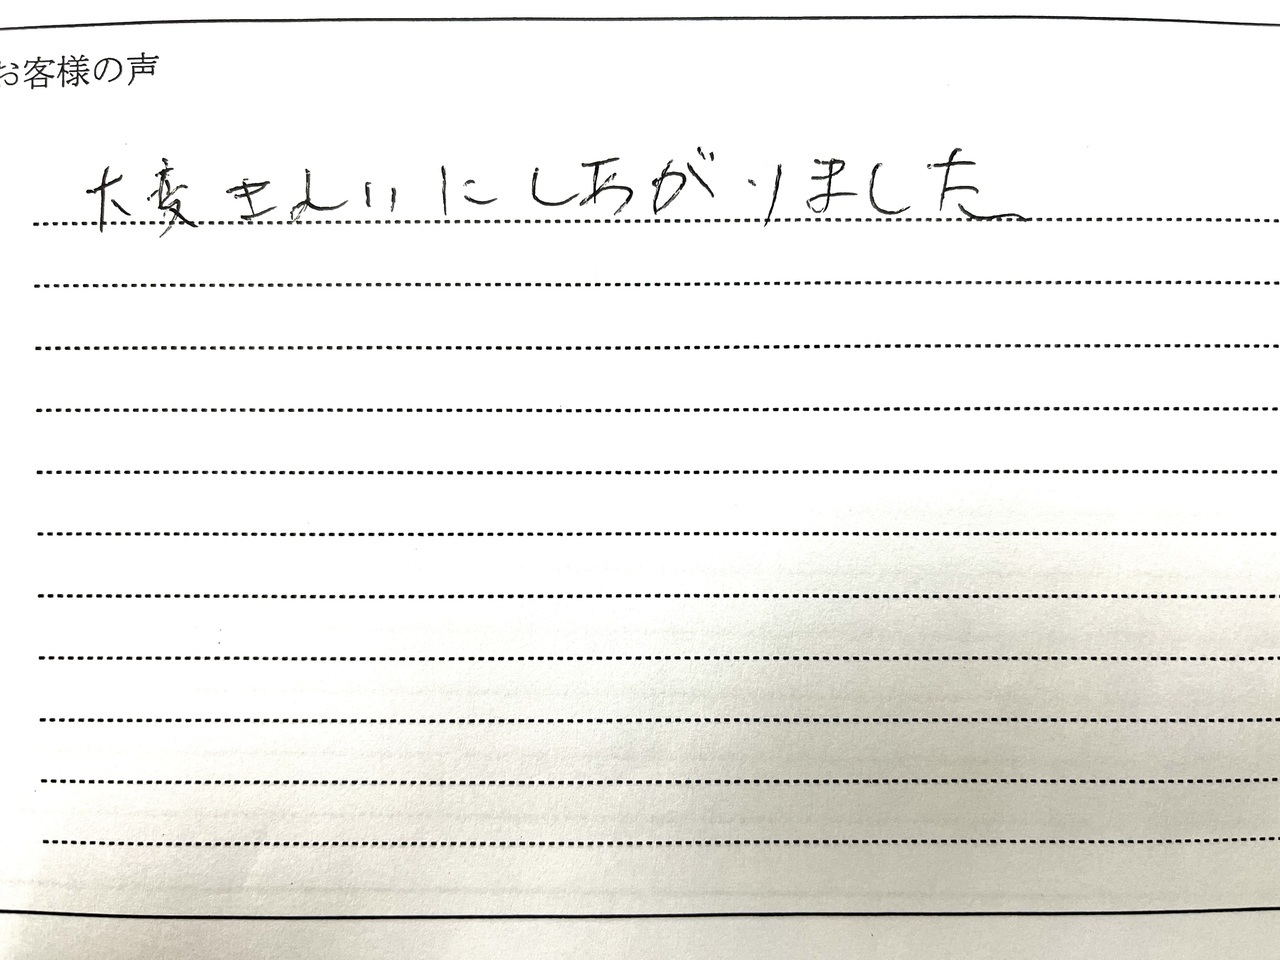 お客様の声
大変きれいにしあがりました